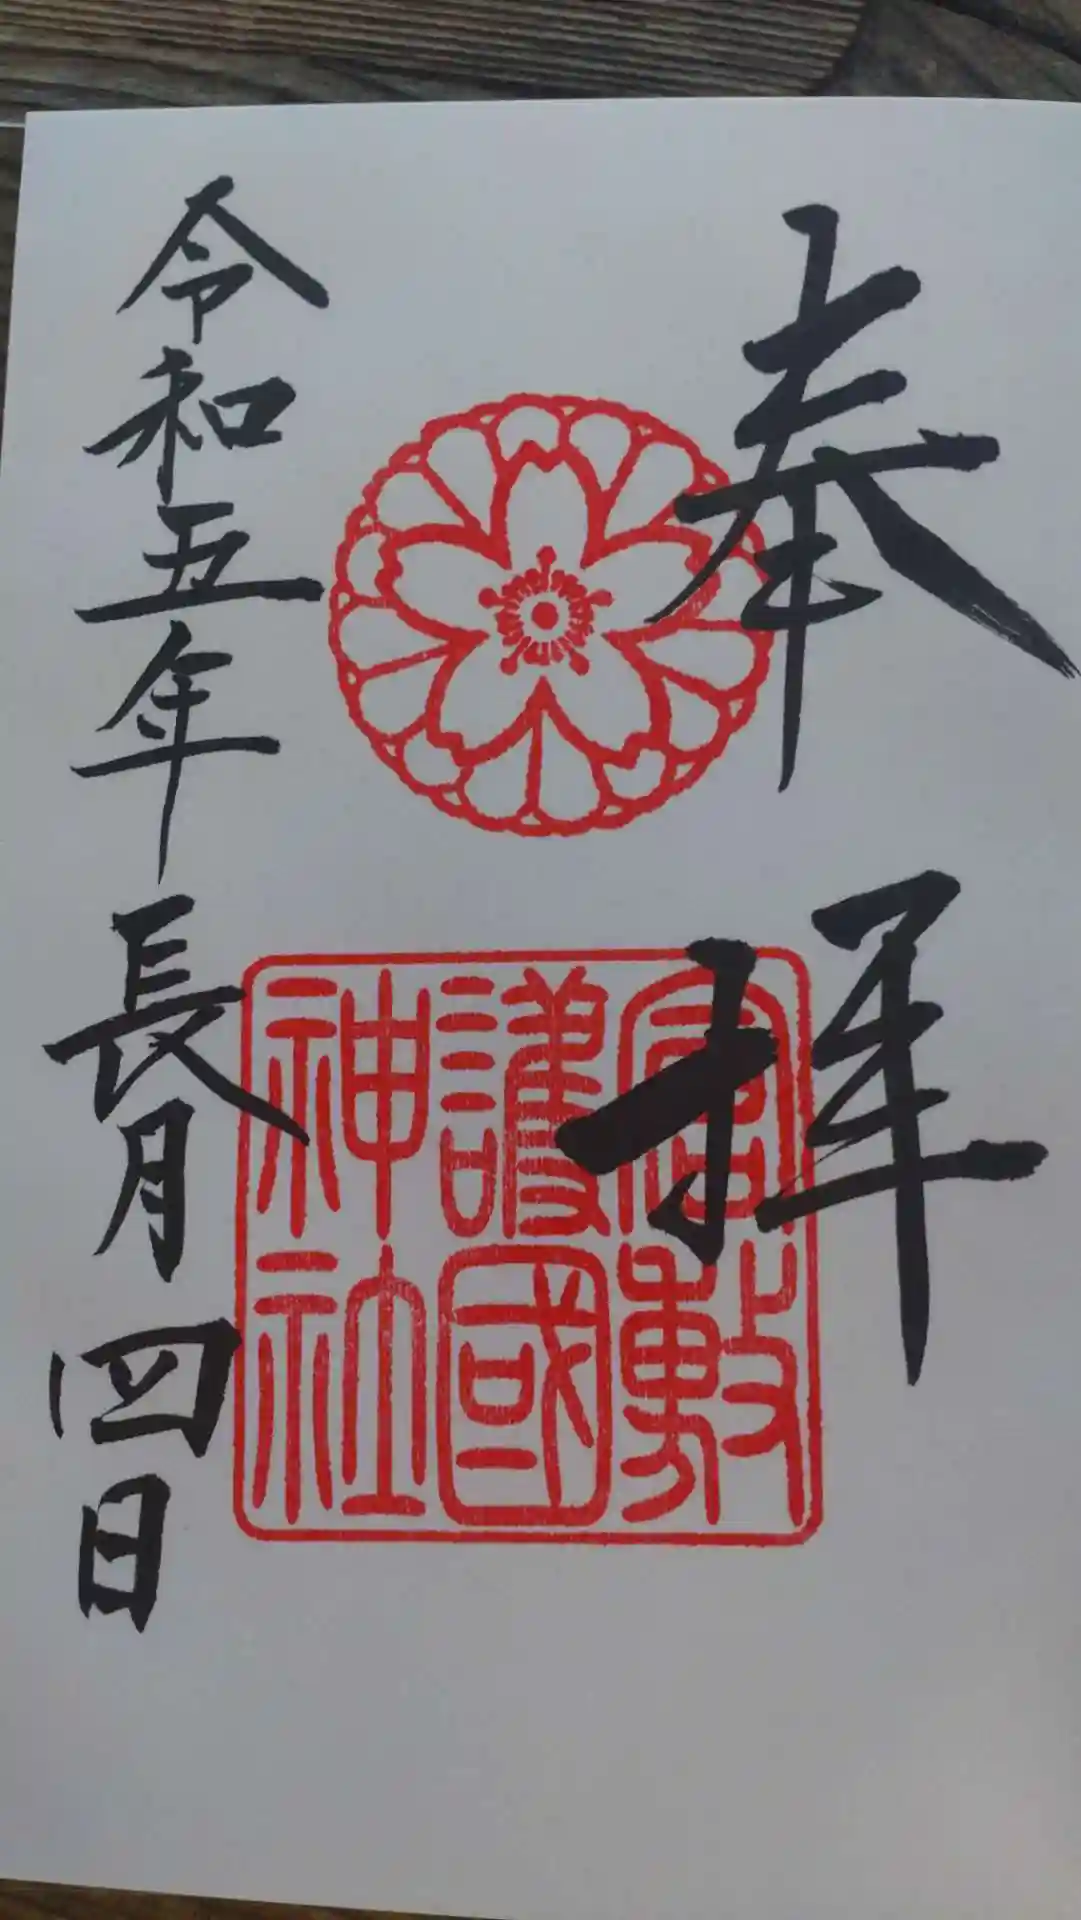 奉拝
倉敷
護國
神社
令和五年長月四日